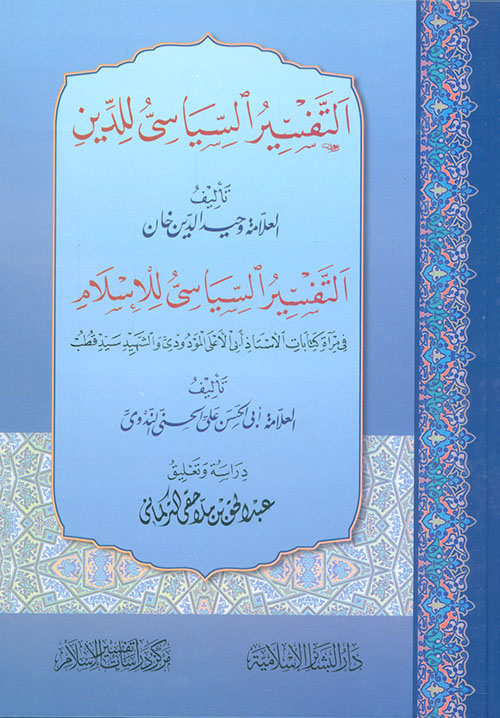 التَّفْسِيرُ السِّيَاسِيُّ لِلدِّينِ
تأليف
العلّامة وحيد الدين خان
التَّفْسِيرُ السِّيَاسِيُّ لِلإِسْلَامِ
في مرآة كتابات الأستاذ أبي الأعلى المودودي والشهيد سيد قطب
تأليف
العلّامة أبي الحسن علي الحسني الندوي
دراسة وتعليق
عبد الحق بن ملا حقي التركماني
دار البشائر الإسلامية
مركز دراسات تفسير الإسلام